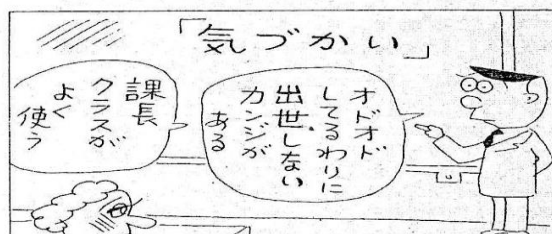 「気づかい」
オドオド
してるわりに
出世しない
カンジが
ある
課長
クラスが
よく
使う